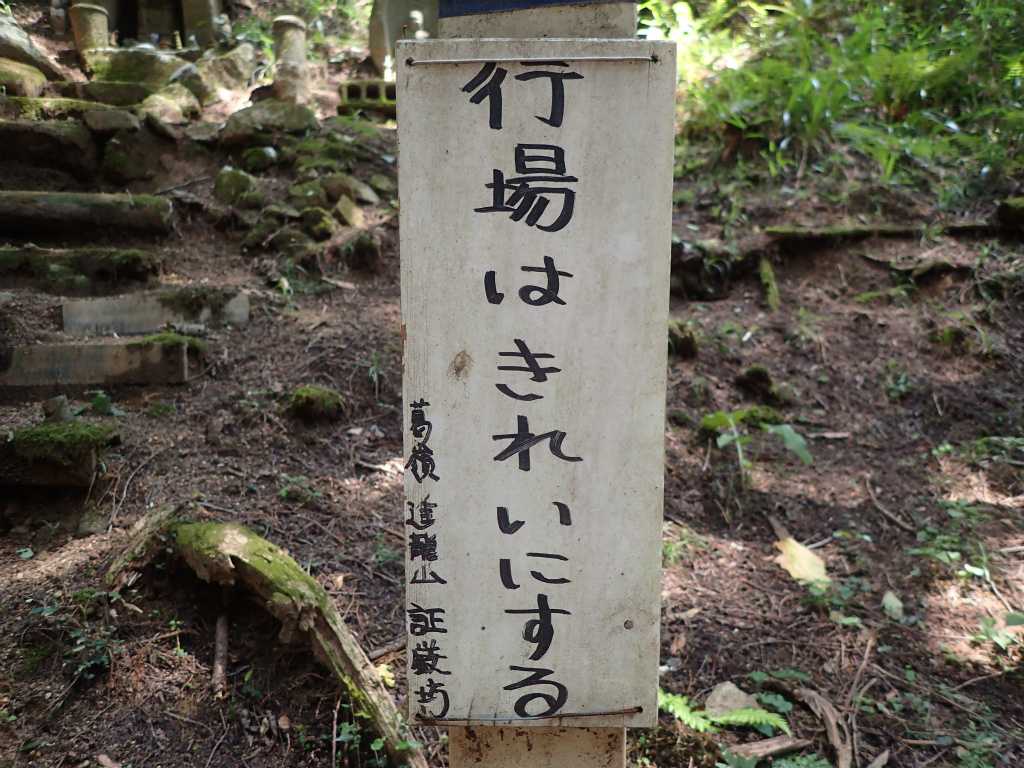 行場はきれいにする
葛嶺 逢龍山 証厳坊